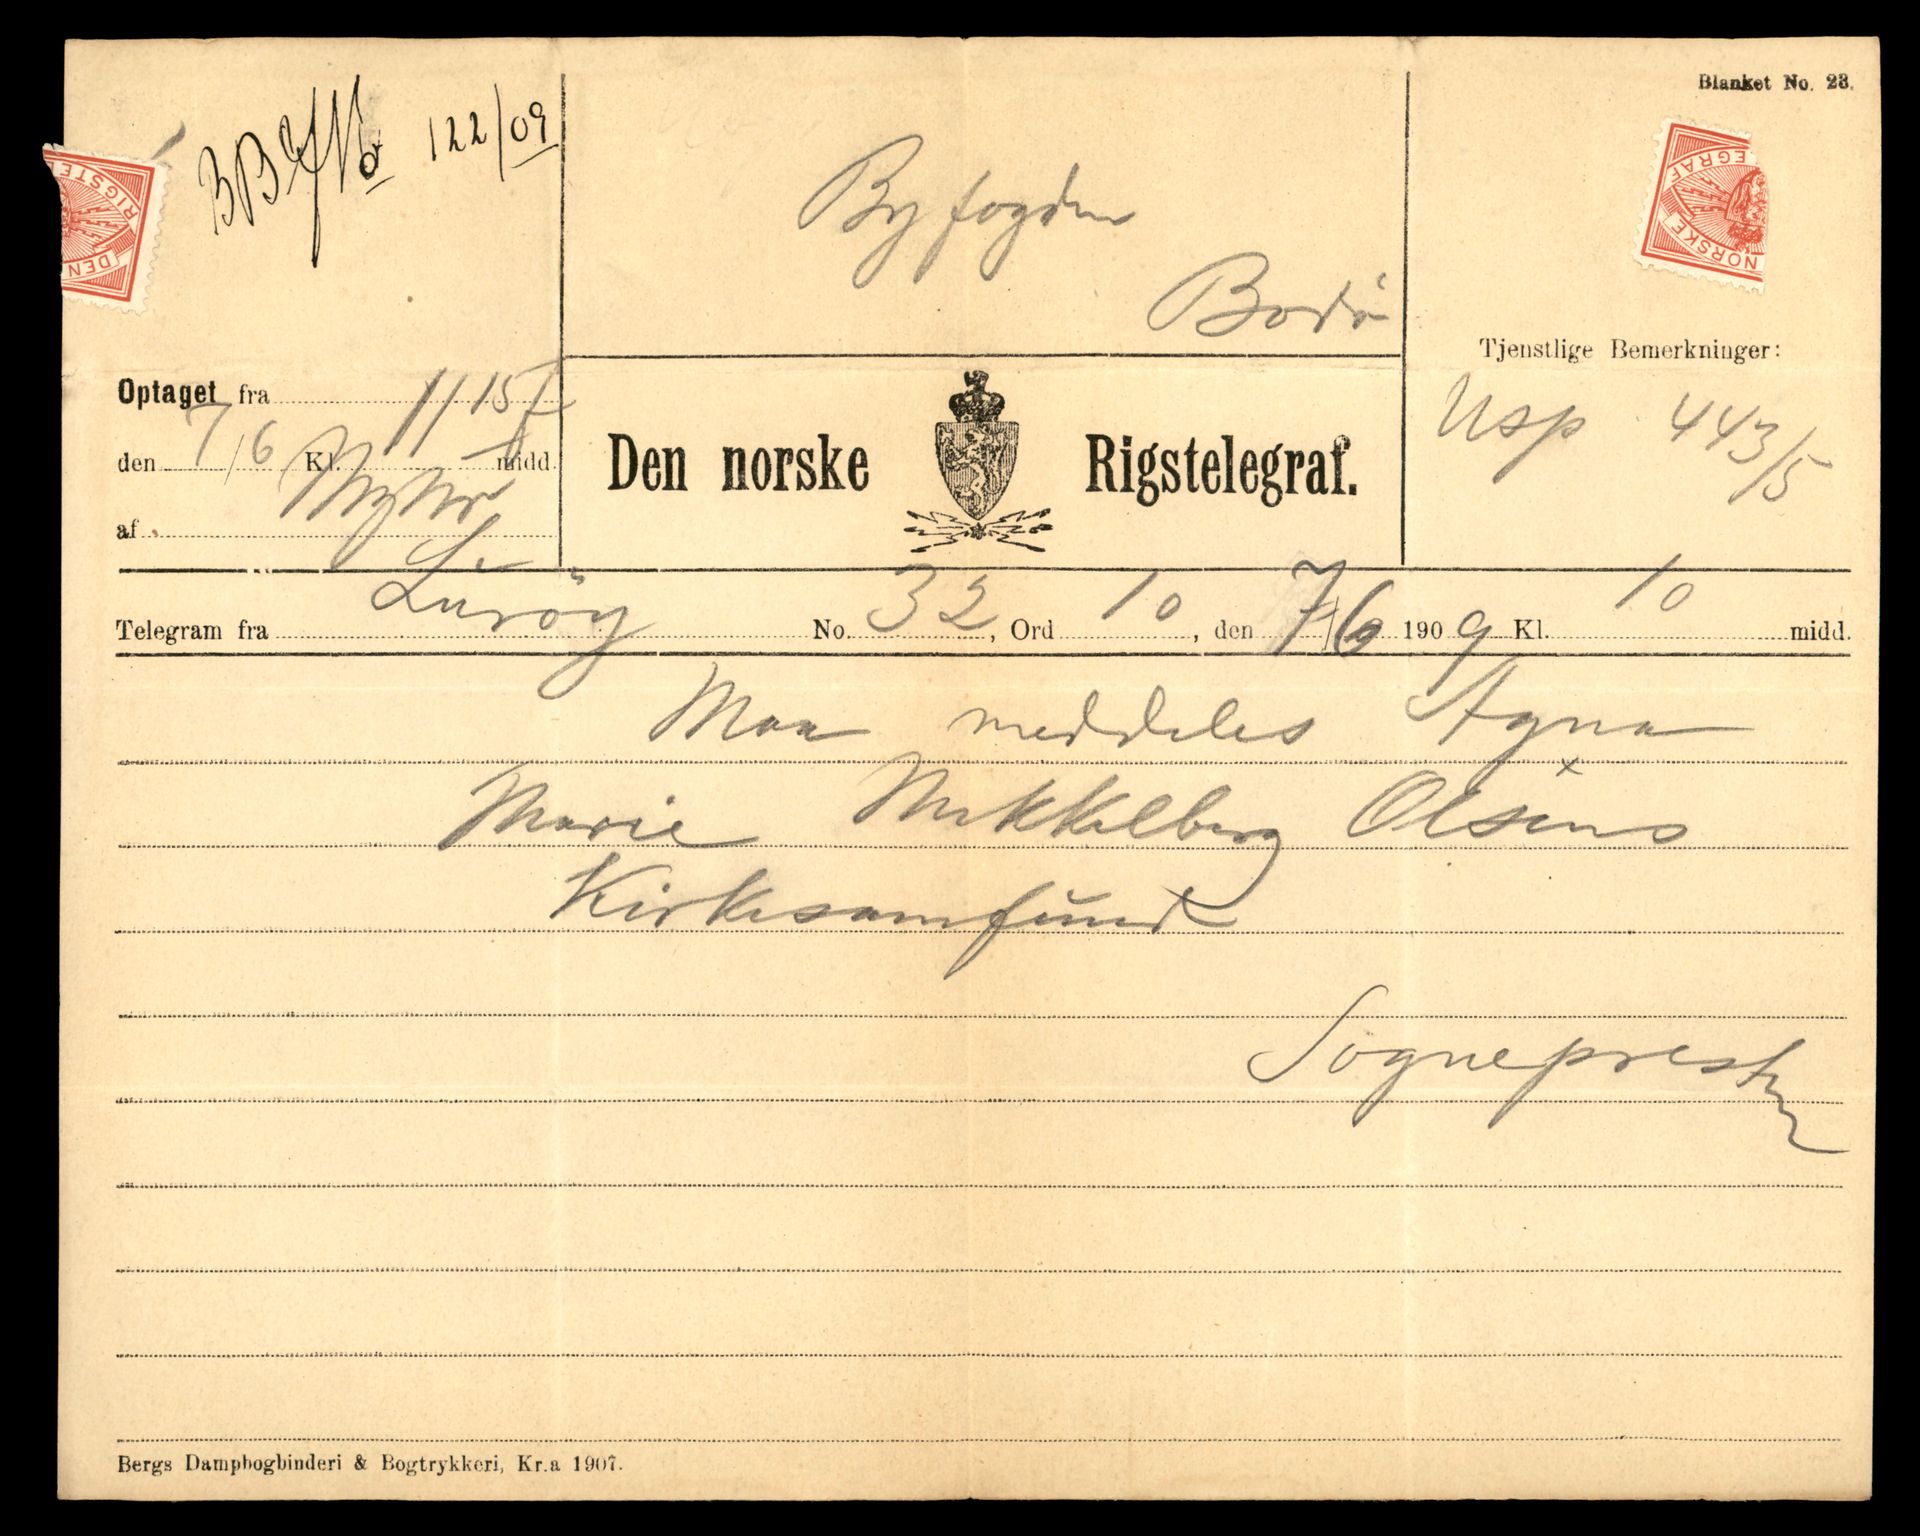 Blanket No. 23.
122/09
Byfogden
Bodø
RIGSTEL
DEN
EGRAF
NORSKE
Optaget fra
den 7/6 Kl. 11 15 F midd.
af
Den norske Rigstelegraf.
Tjenstlige Bemerkninger:
Usp 443/5
Telegram fra Lurøy No. 32, Ord 10, den 7/6 1909 Kl. 10 midd.
Maa meddeles Agna
Marie Mikkelborg Olsens
Kirkesamfund
Sognepresten
Bergs Dampbogbinderi & Bogtrykkeri, Kr.a 1907.